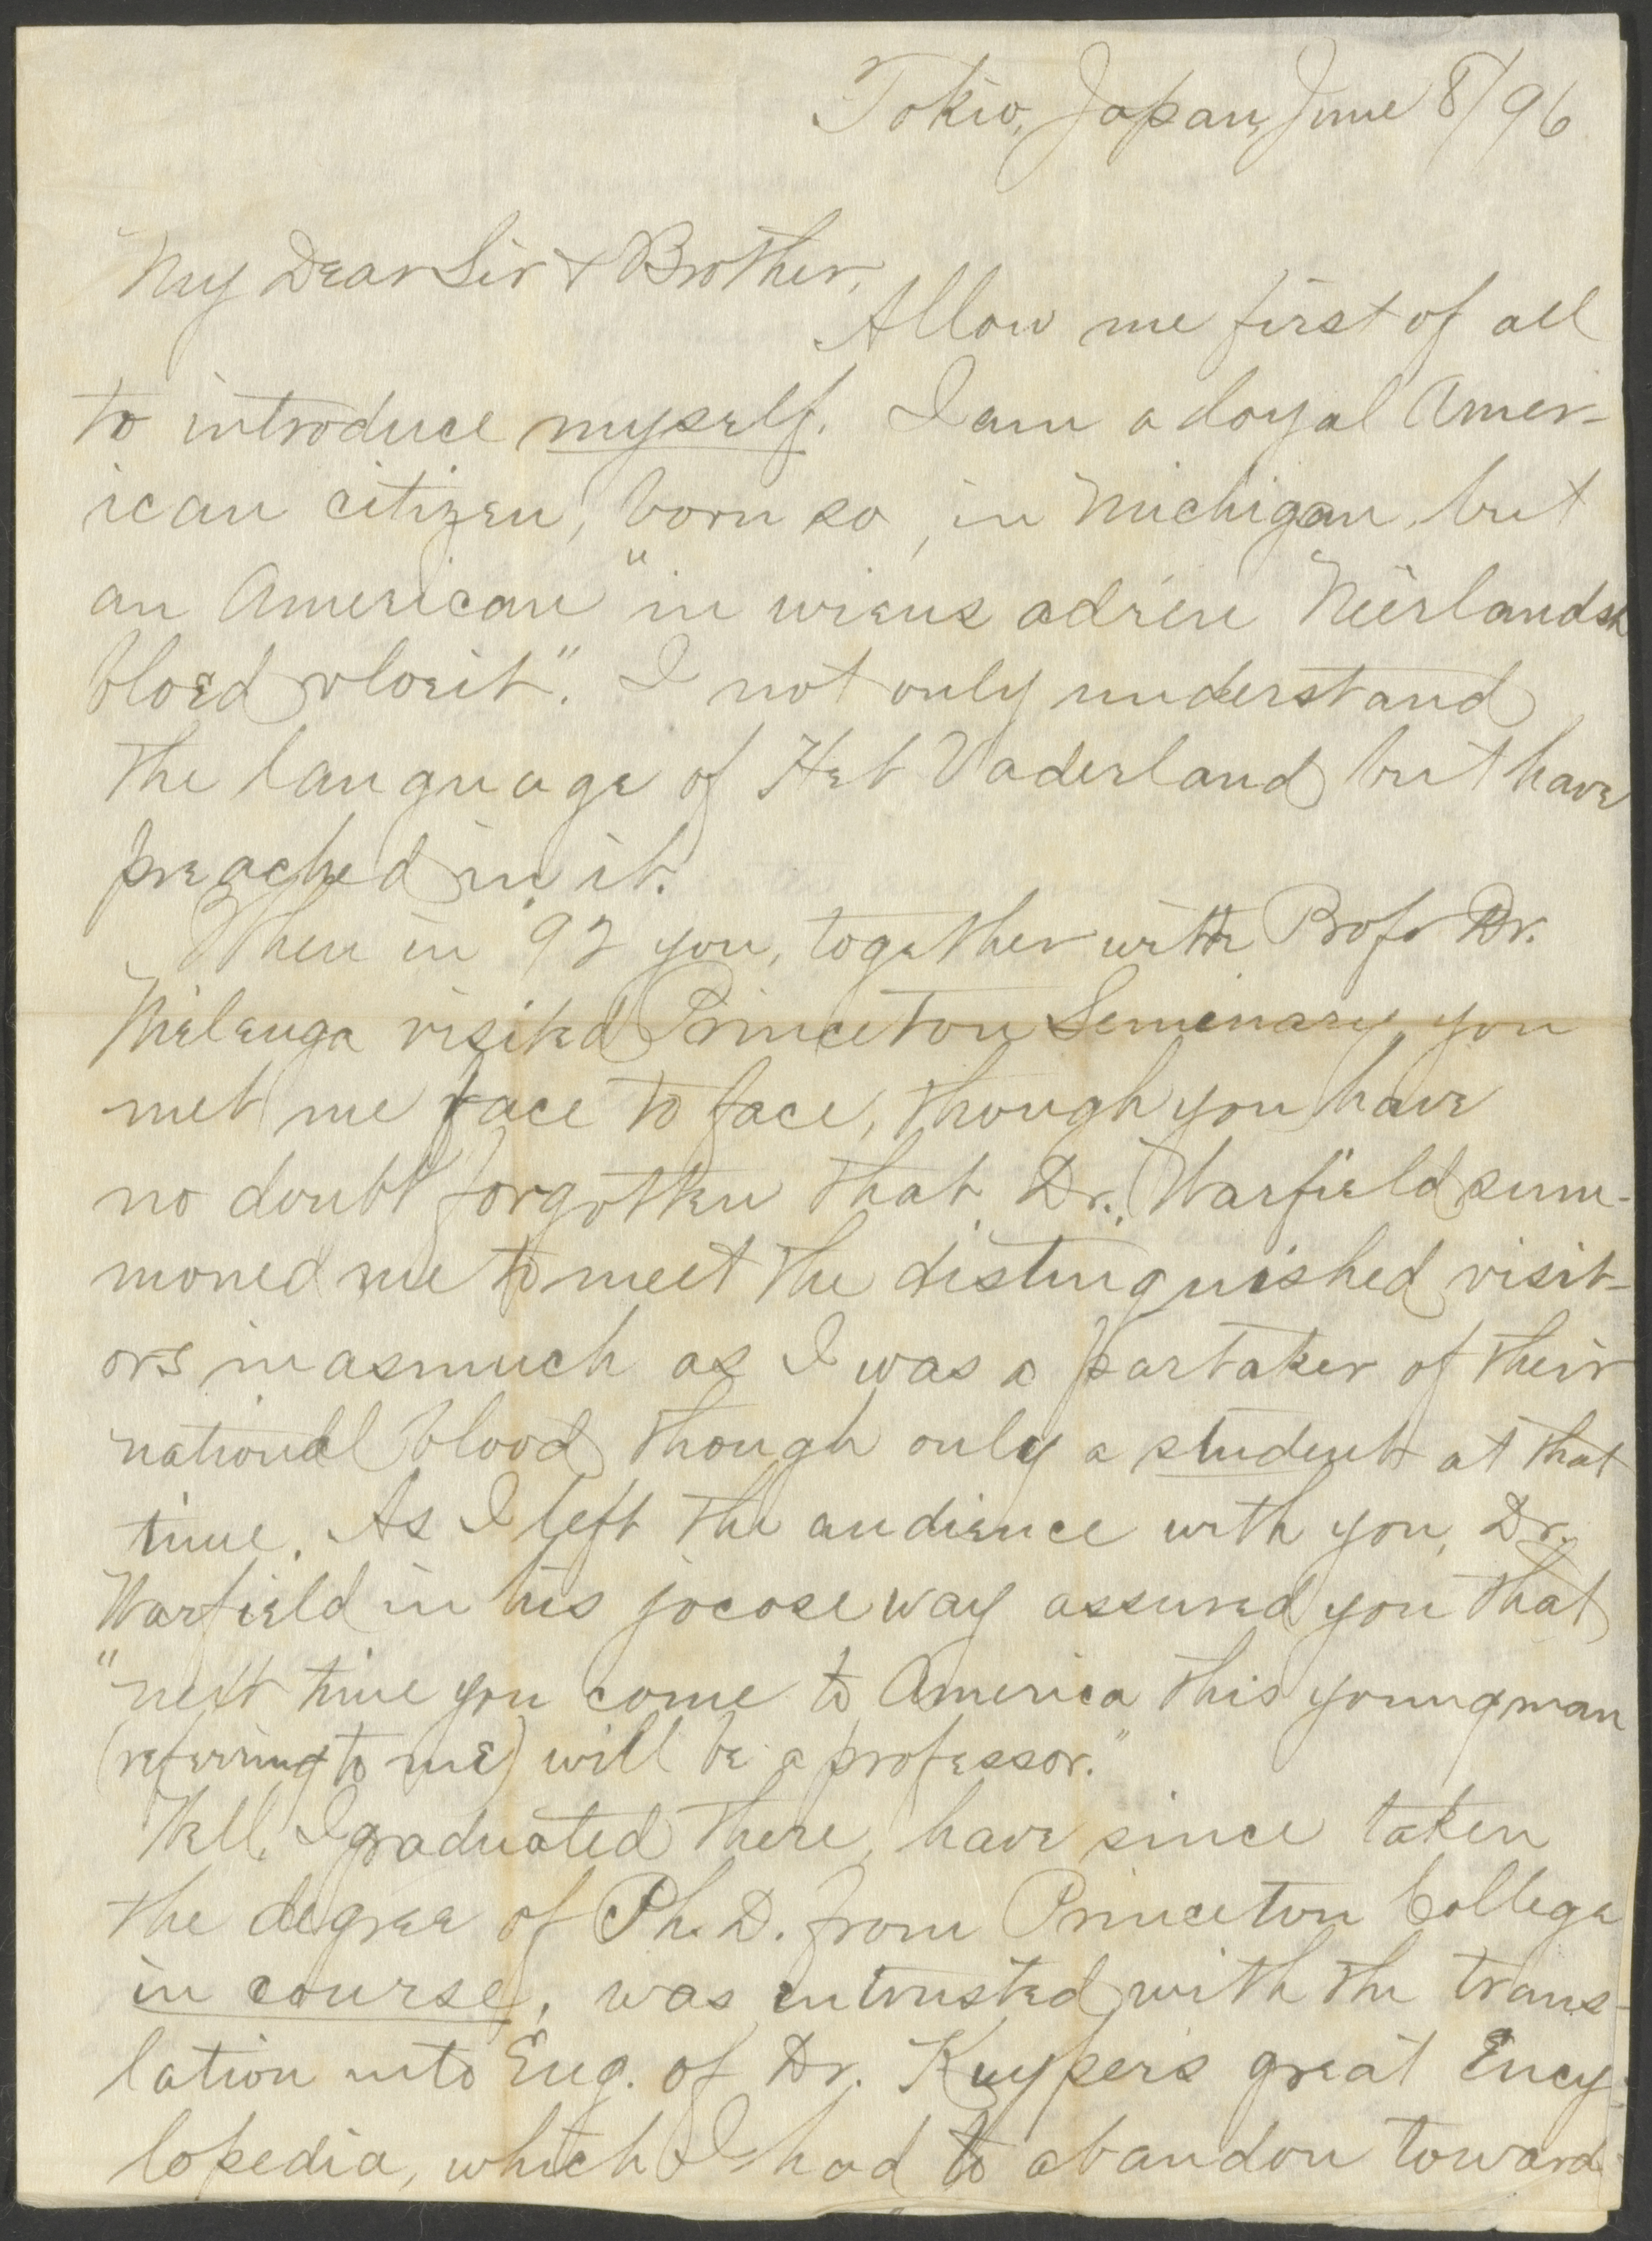 Tokio, Japan, June 8/96
My Dear Sir & Brother,
Allow me first of all
to introduce myself. I am a loyal Amer-
ican citizen, born so, in Michigan, but
an American "in wiens adren Neerlandsch
bloed vloeit". I not only understand
the language of Het Vaderland but have
preached in it.
When in '92 you, together with Prof. Dr.
visited Princeton Seminary, you
met me face to face, though you have
no doubt forgotten that Dr. Warfield sum-
moned me to meet the distinguished visit-
ors inasmuch as I was a partaker of their
national blood though only a student at that
time. As I left the audience with you, Dr.
Warfield in his jocose way assured you that
"next time you come to America this young man
(referring to me) will be a professor."
Well, I graduated there, have since taken
the degree of Ph.D. from Princeton College
in course, was intrusted with the trans-
lation into Eng. of Dr. Kuyper's great Ency-
lopedia, which I had to abandon toward